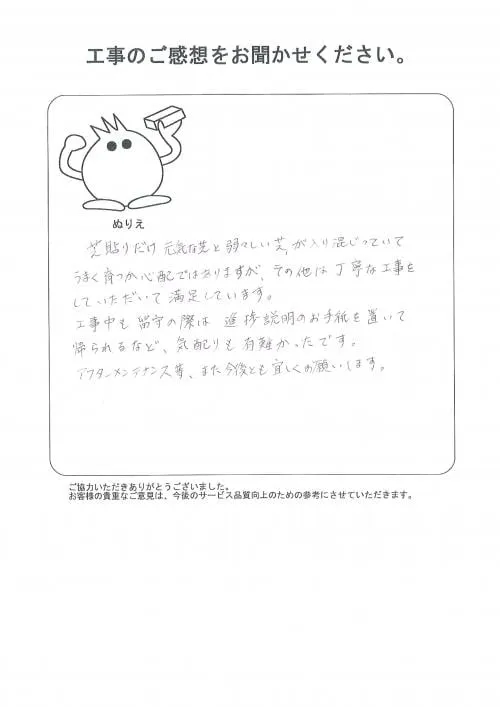 工事のご感想をお聞かせください。
ぬりえ
芝貼りだけ 元気な芝と弱々しい芝が入り混じっていて
うまく育つか心配ではありますが、その他は丁寧な工事を
していただいて満足しています。
工事中も留守の際は進捗説明のお手紙を置いて
帰られるなど、気配りも有難かったです。
アフターメンテナンス等、また今後とも宜しくお願いします。
ご協力いただきありがとうございました。
お客様の貴重なご意見は、今後のサービス品質向上のための参考にさせていただきます。